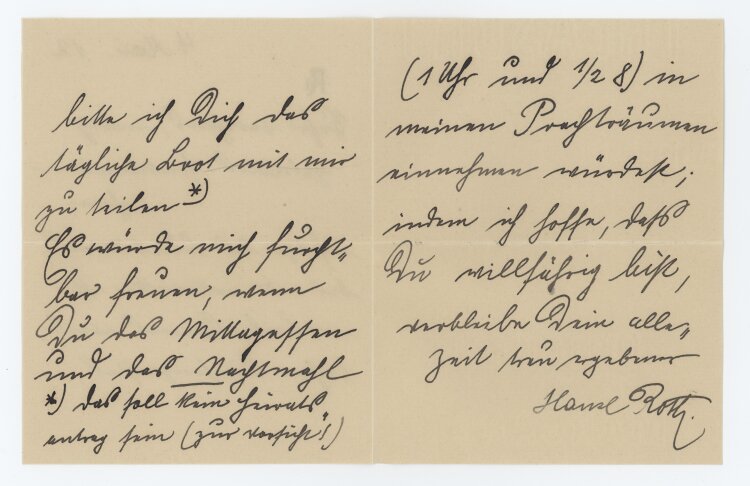 bitte ich Dich das
tägliche Brot mit mir
zu teilen *)
Es würde mich furcht„
bar freuen, wenn
Du das Mittagessen
und das Nachtmahl
*) das soll kein Heirats
antrag sein (zur Vorsicht!)
(1 Uhr und 1/2 8) in
meinen Prachträumen
einnehmen würdest;
indem ich hoffe, daß
Du willfährig bist,
verbleibe Dein alle„
zeit treu ergebener
Hansl Roth.